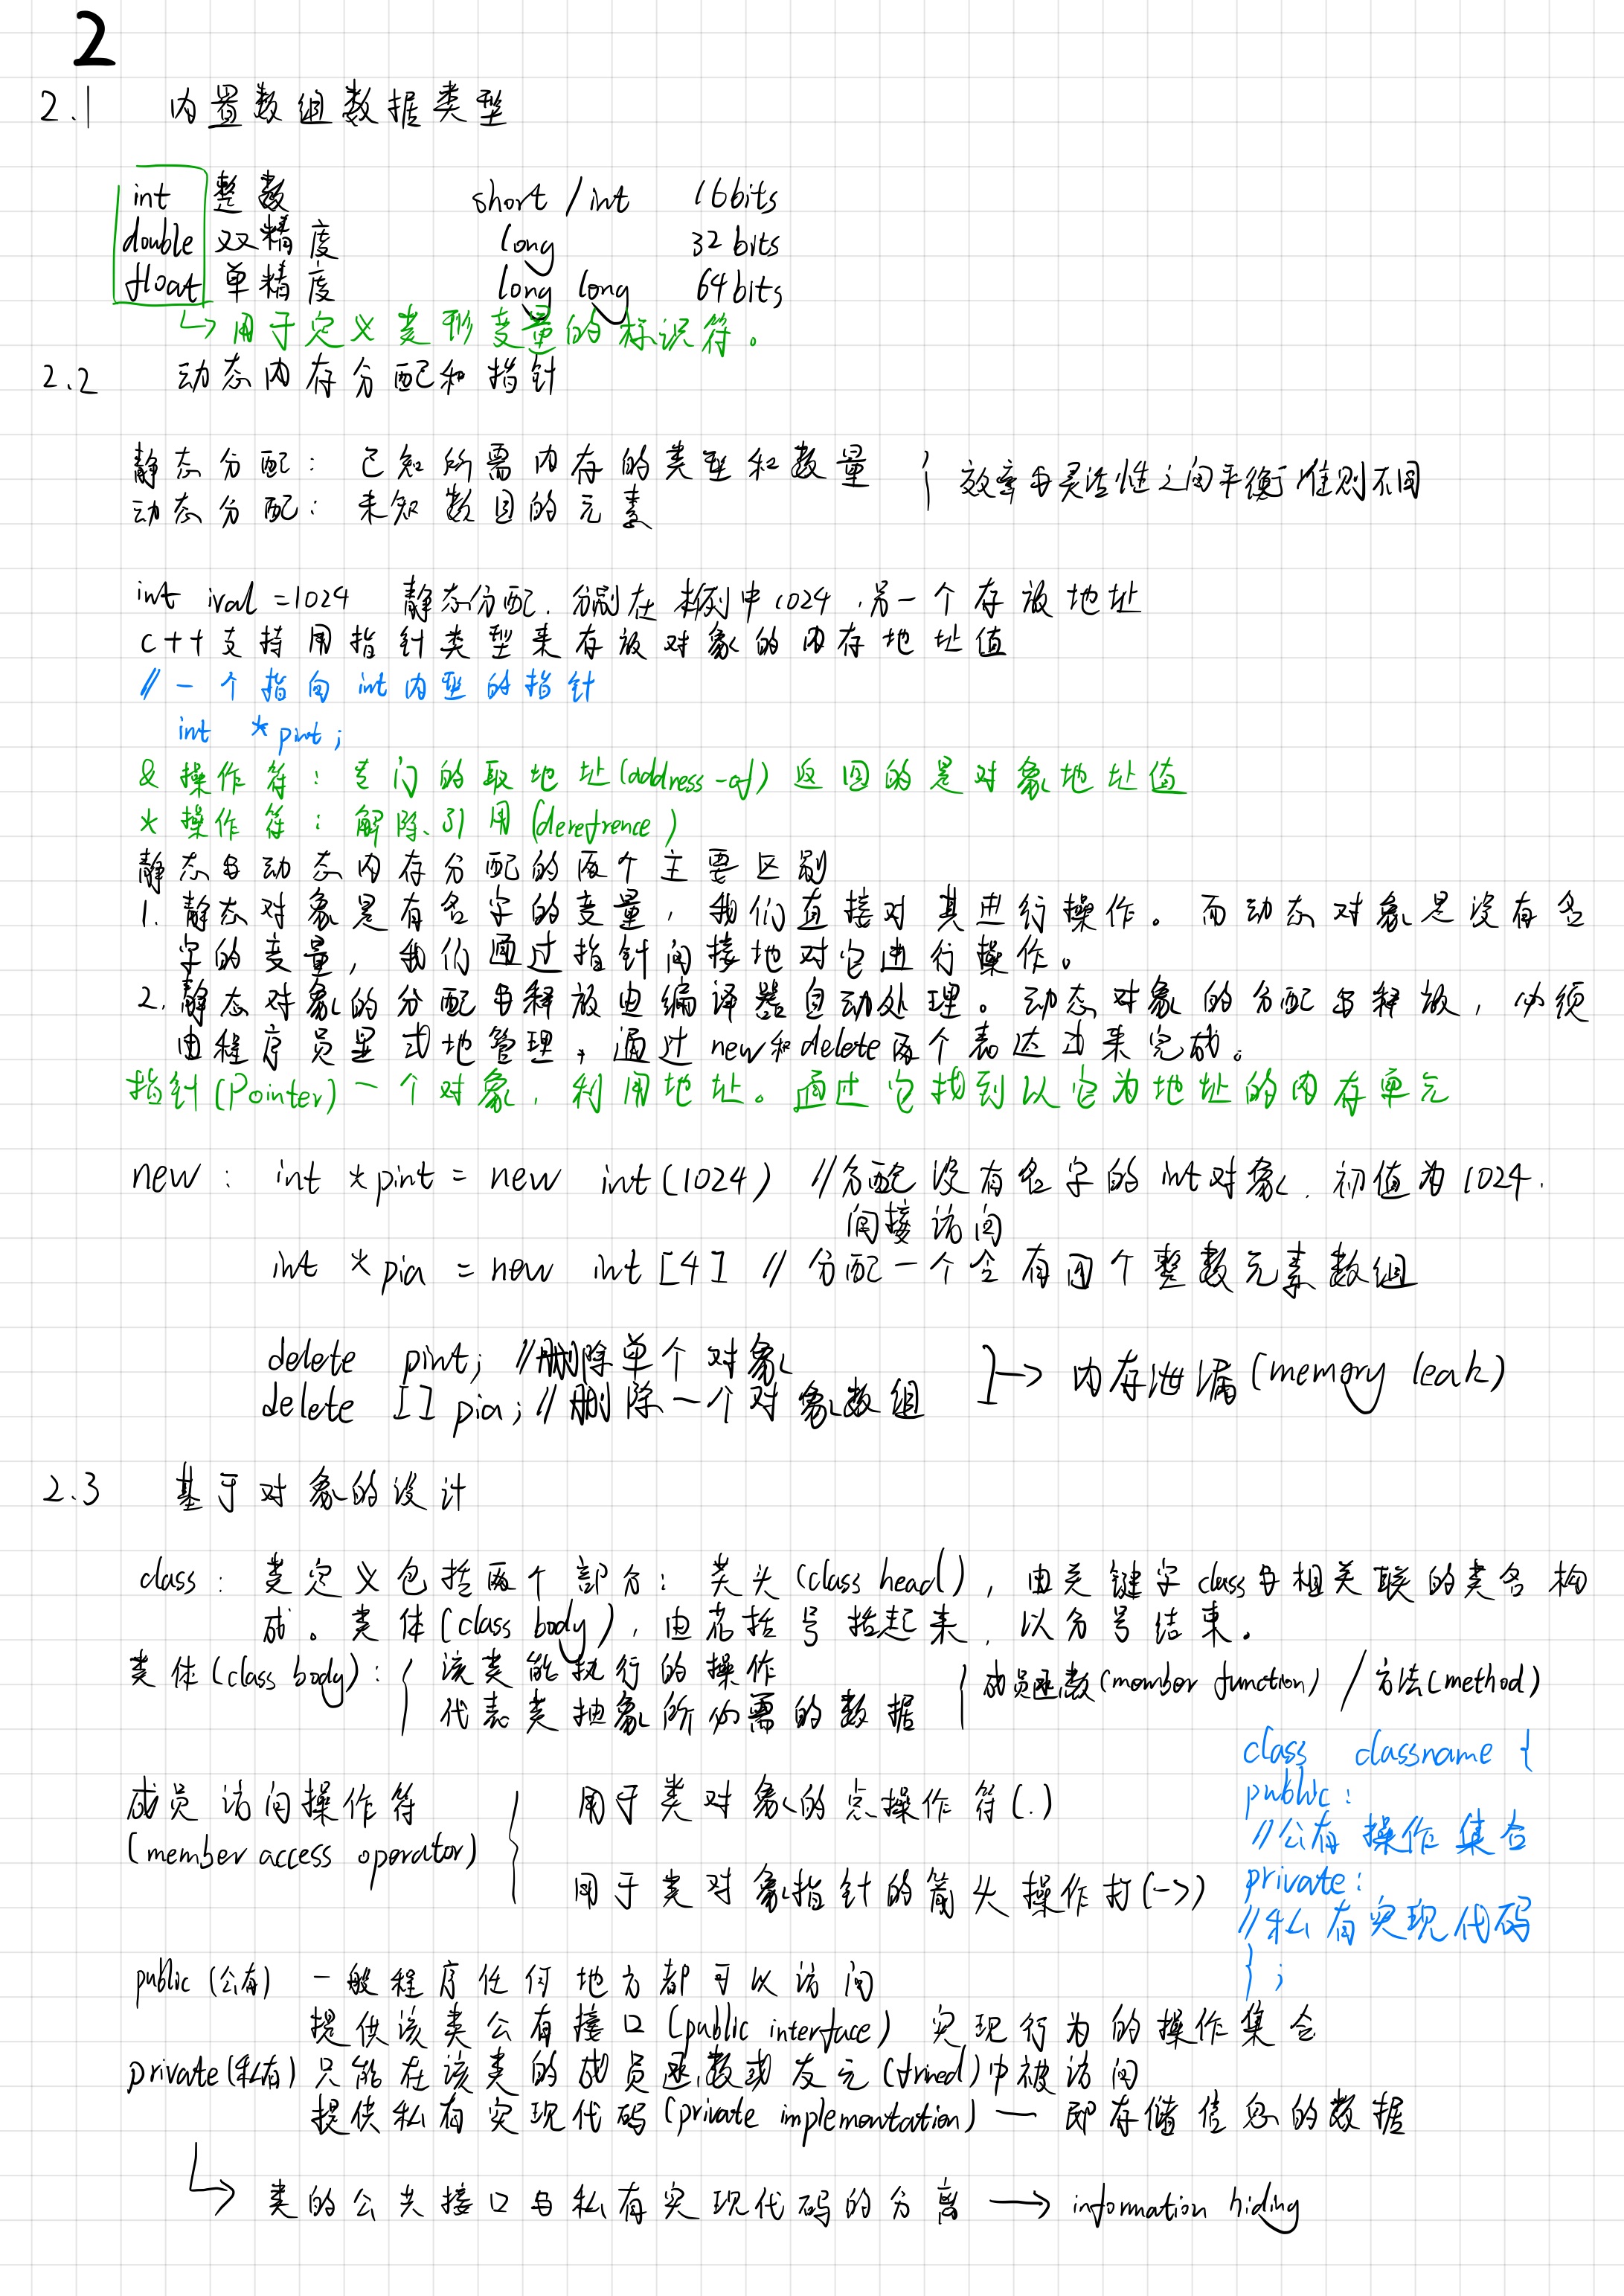 2
2.1 内置数组数据类型
int 整数 short / int 16bits
double 双精度 long 32 bits
float 单精度 long long 64bits
↳用于定义类形变量的标识符。
2.2 动态内存分配和指针
静态分配: 已知所需内存的类型和数量
动态分配: 未知数目的元素
} 效率与灵活性之间平衡准则不同
int ival =1024 静态分配. 分别在 中1024 ,另一个存放地址
C++支持用指针类型来存放对象的内存地址值
// 一个指向 int 内型的指针
int *pint;
& 操作符: 专门的取地址(address-of) 返回的是对象地址值
* 操作符: 解除引用 (derefrence)
静态与动态内存分配的两个主要区别
1. 静态对象是有名字的变量, 我们直接对其进行操作。而动态对象是没有名
字的变量, 我们通过指针间接地对它进行操作。
2. 静态对象的分配与释放由编译器自动处理。动态对象的分配与释放, 必须
由程序员显式地管理, 通过 new和 delete 两个表达式来完成。
指针(Pointer) 一个对象, 利用地址。通过它找到以它为地址的内存单元
new : int *pint = new int(1024) //分配没有名字的 int对象. 初值为 1024.
间接访问
int *pia = new int [4] // 分配一个含有四个整数元素数组
delete pint; //删除单个对象
delete [] pia; //删除一个对象数组
}→ 内存泄漏(memory leak)
2.3 基于对象的设计
class: 类定义包括两个部分: 类头 (class head), 由关键字 class与相关联的类名构
成。类体(class body), 由花括号括起来, 以分号结束。
类体(class body): { 该类能执行的操作
代表类抽象所必需的数据
{ 成员函数(member function) / 方法(method)
成员访问操作符
(member access operator)
{ 用于类对象的点操作符(.)
用于类对象指针的箭头操作打(->)
class classname {
public:
//公有操作集合
private:
//私有实现代码
};
public (公有) 一般程序任何地方都可以访问
提供该类公有接口(public interface) 实现行为的操作集合
private(私有) 只能在该类的成员函数或友元(fried)中被访问
提供私有实现代码(private implementation) — 即存储信息的数据
↳ 类的公共接口与私有实现代码的分离 → information hiding